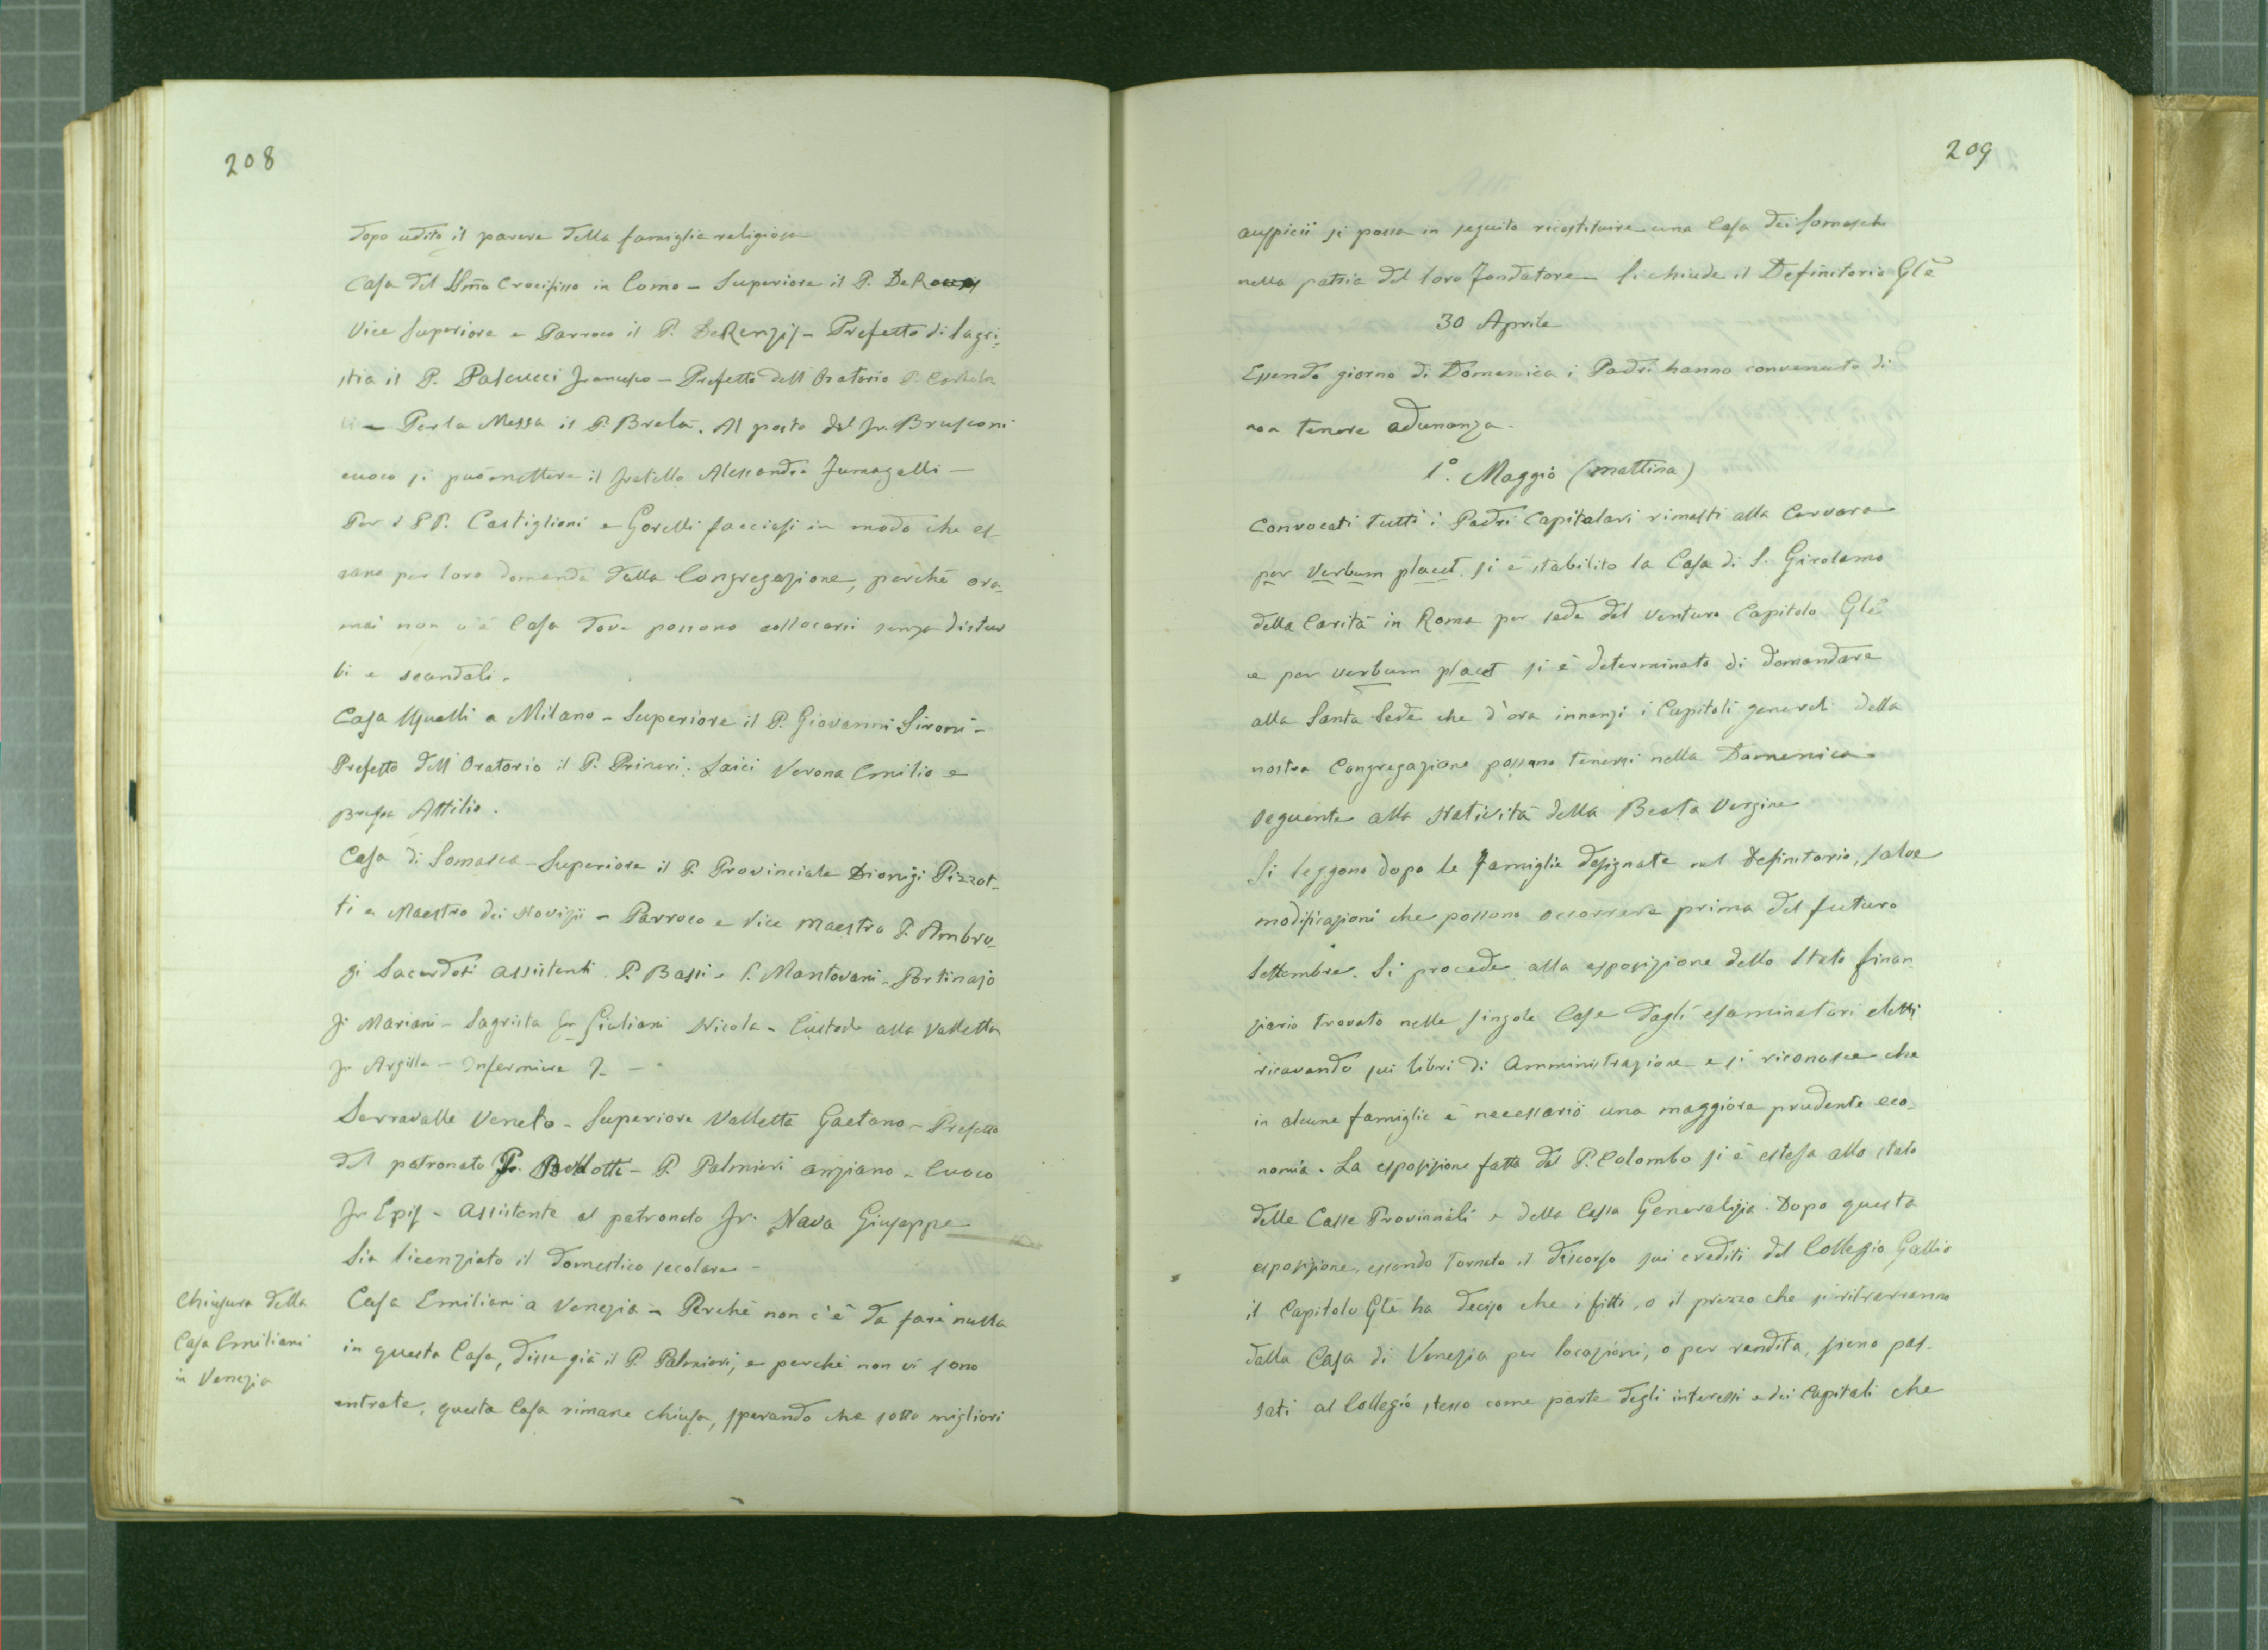 208
dopo udito il parere della famiglia religiosa
Casa del SSmo Crocifisso in Como - Superiore il P. De
Vice Superiore e Parroco il P. DeRenzis - Prefetto di Sagri:
stia il P. Pascucci Francesco - Prefetto dell'Oratorio P.
- Per la Messa il P. Brela. Al posto del Fr. Brusconi
cuoco si può mettere il fratello Alessandro Fumagalli -
Per i PP. Castiglioni e Gorelli facciasi in modo che es
cano per loro domanda dalla Congregazione, perché ora-
mai non v'è Casa dove possono collocarsi senza distur
bi e scandali.
Casa Usuelli a Milano - Superiore il P. Giovanni Sironi -
Prefetto dell'Oratorio il P. Laici Verona Emilio e
Attilio.
Casa di Somasca - Superiore il P. Provinciale Dionigi Pizzot-
ti e Maestro dei Novizii - Parroco e Vice Maestro P. Ambro-
gi Sacerdoti assistenti P. Bassi - P. Mantovani - Portinajo
Fr Mariani - Sagrista Fr Giuliani Nicola - Custode alla Valletta
Fr Argilla - Infermiere ?. -
Serravalle Veneto - Superiore Valletta Gaetano - Prefetto
del patronato P. - P. Palmieri anziano - Cuoco
Fr Epis - Assistente al patronato Fr. Nava Giuseppe
Sia licenziato il domestico secolare -
Chiusura della
Casa Emiliani
in Venezia
Casa Emiliani a Venezia - Perché non c'è da fare nulla
in questa Casa, disse già il P. Palmieri, e perché non vi sono
entrate, questa Casa rimane chiusa, sperando che sotto migliori
209
auspicii si possa in seguito ricostituire una Casa dei Somaschi
nella patria del loro Fondatore - Si chiude il Definitorio Glē
30 Aprile
Essendo giorno di Domenica i Padri hanno convenuto di
non tenere adunanza.
1°. Maggio (mattina)
Convocati tutti i Padri Capitolari rimasti alla Cervara
per verbum placet si è stabilito la Casa di S. Girolamo
della Carità in Roma per sede del venturo Capitolo Glē
e per verbum placet si è determinato di domandare
alla Santa Sede che d'ora innanzi i Capitoli generali della
nostra Congregazione possano tenersi nella Domenica
seguente alla Natività della Beata Vergine
Si leggono dopo le Famiglie designate nel Definitorio, salve
modificazioni che possono occorrere prima del futuro
Settembre. Si procede alla esposizione dello Stato finan
ziario trovato nelle singole Case dagli esaminatori eletti
ricavando sui libri di Amministrazione e si riconosce che
in alcune famiglie è necessario una maggiore prudente eco-
nomia. La esposizione fatta dal P. Colombo si è estesa allo stato
delle Casse Provinciali e della Cassa Generalizia. Dopo questa
esposizione, essendo tornato il discorso sui crediti del Collegio Gallio
il Capitolo Glē ha deciso che i fitti, o il prezzo che si ritrarranno
dalla Casa di Venezia per locazioni, o per vendita, sieno pas-
sati al Collegio stesso come parte degli interessi e dei Capitali che